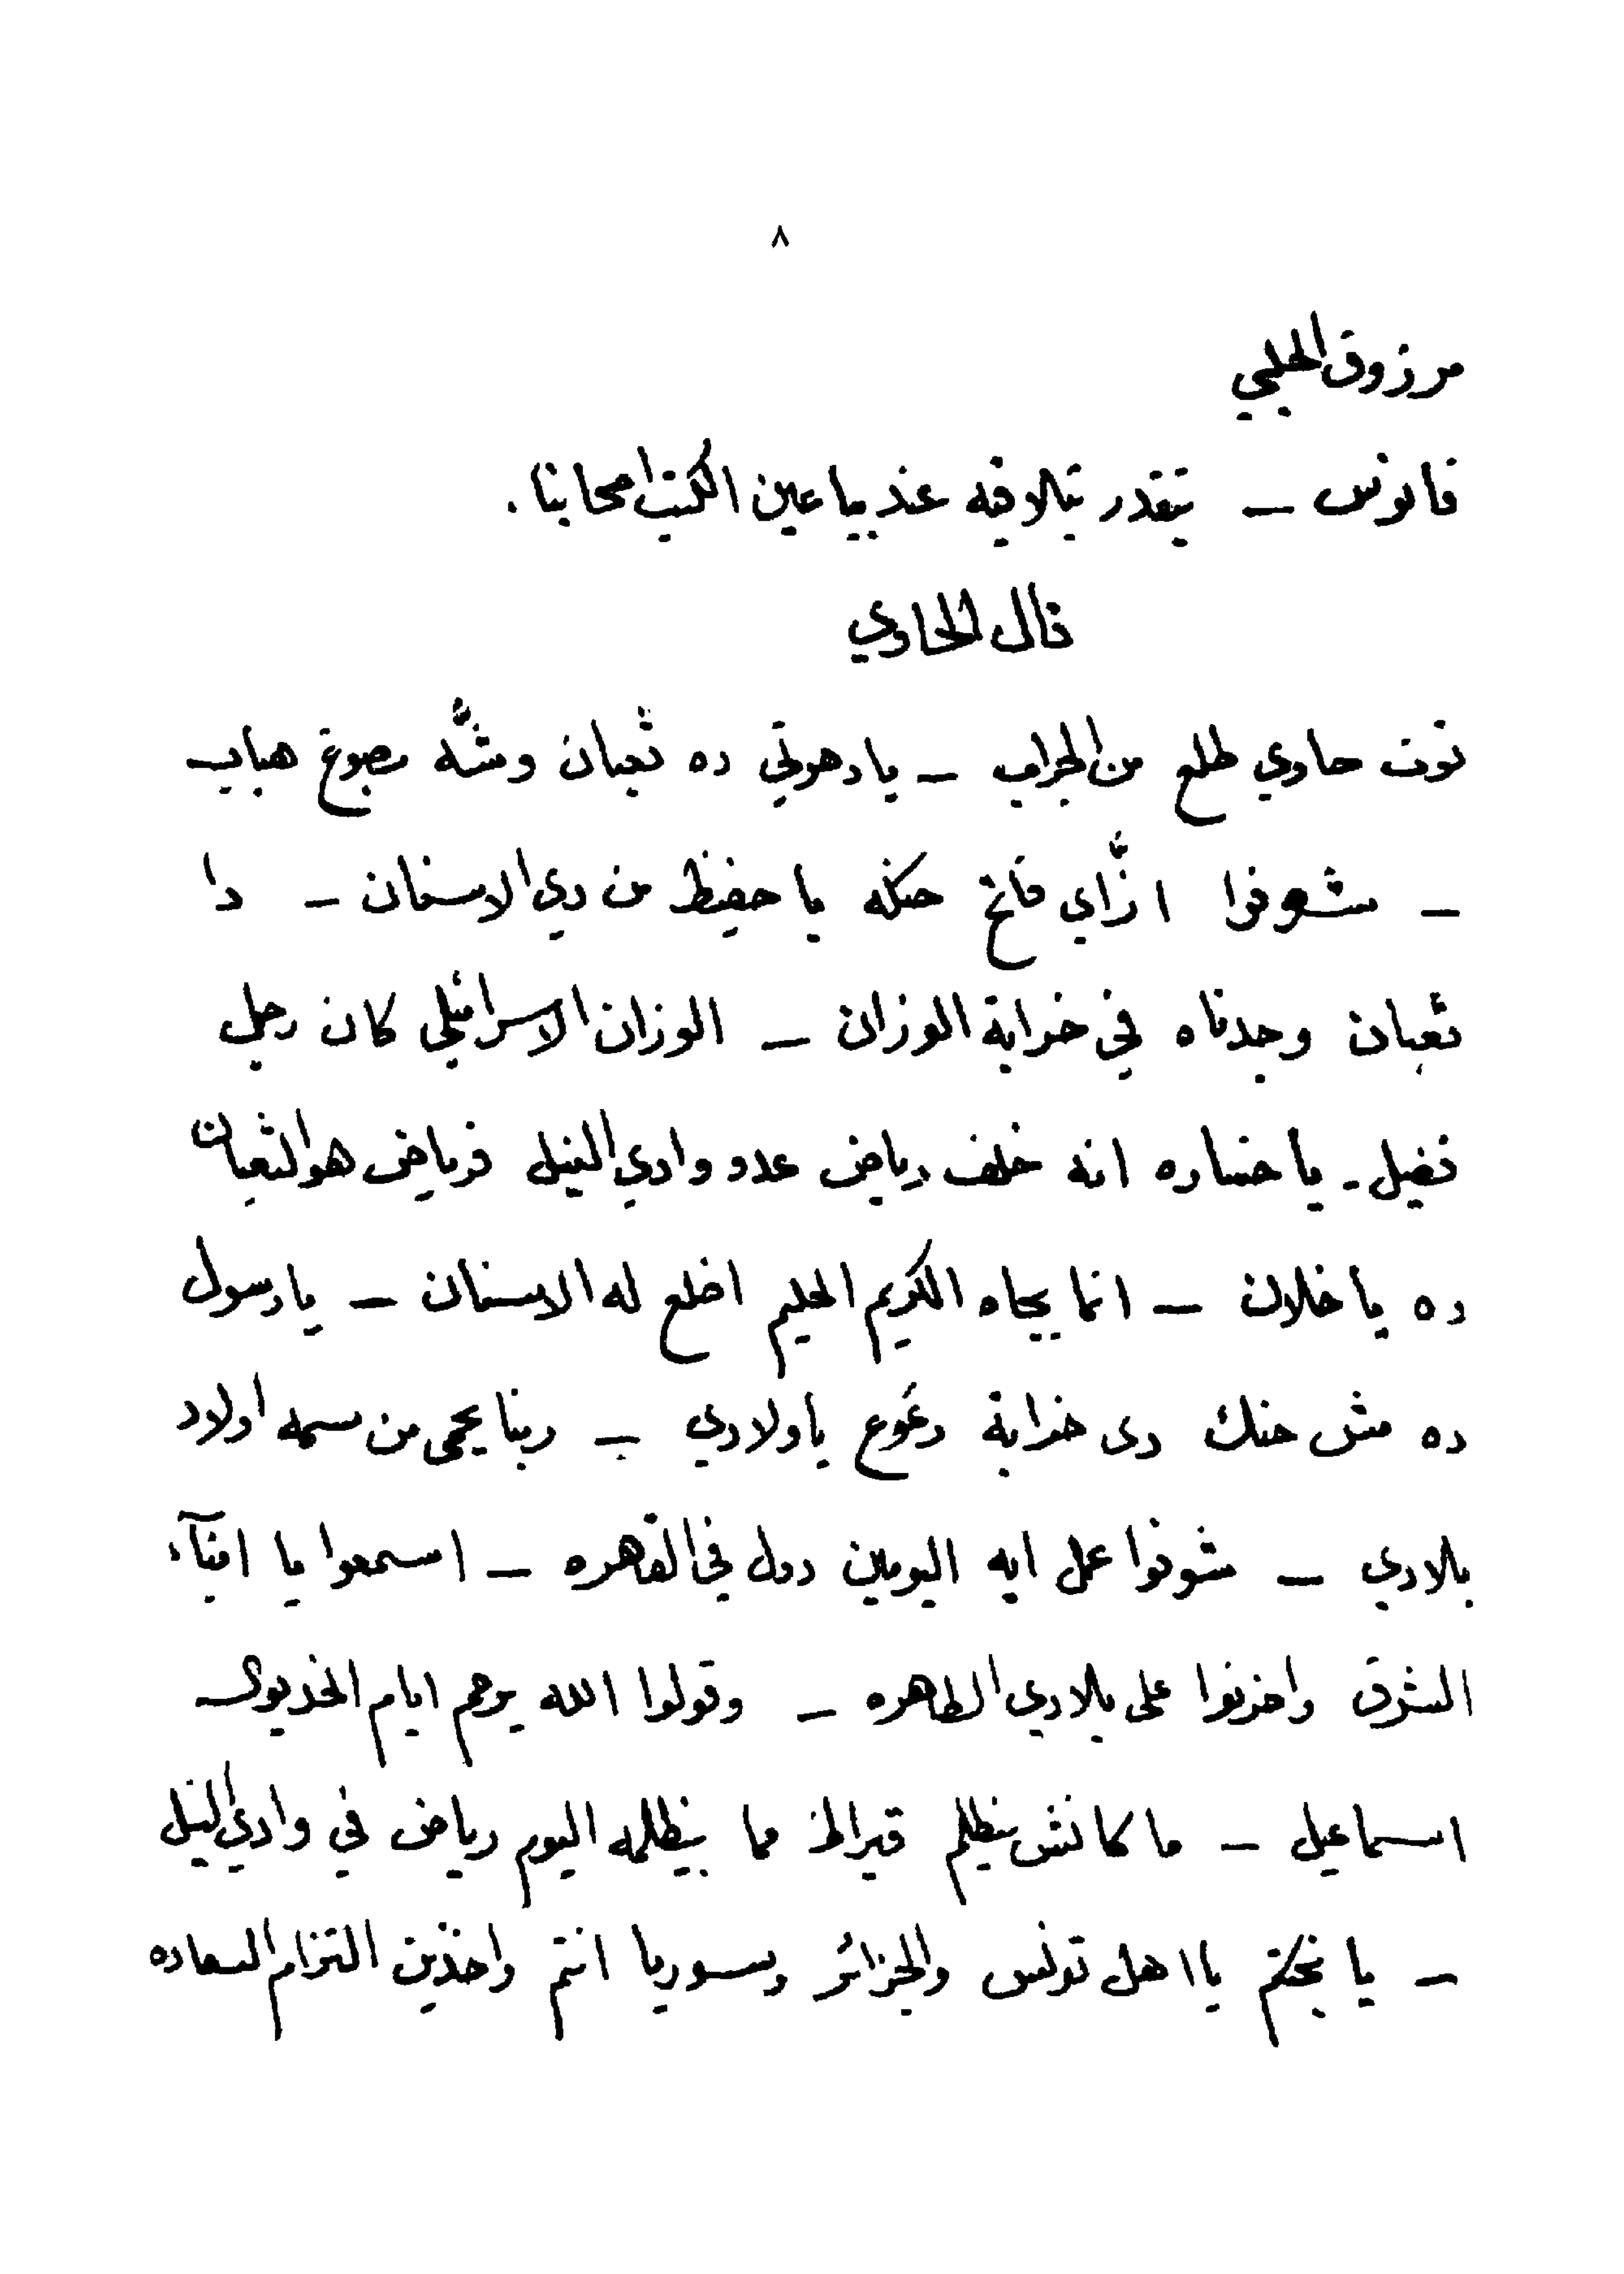 ٨
مرزوق الحلبي
فانوس — تقدر تلاقيه عند بياعين الكتب امجانا.
قال الحاوي
توت حاوي طلع من الجراب — يا دهوتي ده ثعبان وشُّه مصبوغ هباب
— شوفوا ازَّاي فاتح حنكه يا حفيظ من دي الاسنان — دا
ثعبان وجدناه في خرابة الوزان — الوزان الاسرائيلي كان رجل
فضيل. يا خساره انه خلف رياض عدو وادي النيل فرياض هو الثعبان
ده يا خلان — انما بجاه الكريم الحليم اخلع له الاسنان — يا رسول
ده مش حنك دى خرابة وعوع ياولادي — ربنا يحمى من سمه اولاد
بلادي — شوفوا عمل ايه اليومين دول في القهره — اسمعوا يا ابنآء
الشرق واحزنوا على بلادي الطاهره — وقولوا الله يرحم ايام الخديوى
اسماعيل — ما كانش يظلم قيراط مما يظلمه اليوم رياض في وادي النيل
— يا بختكم يا اهل تونس والجزائر وسوريا انتم واخذين التزام السعاده